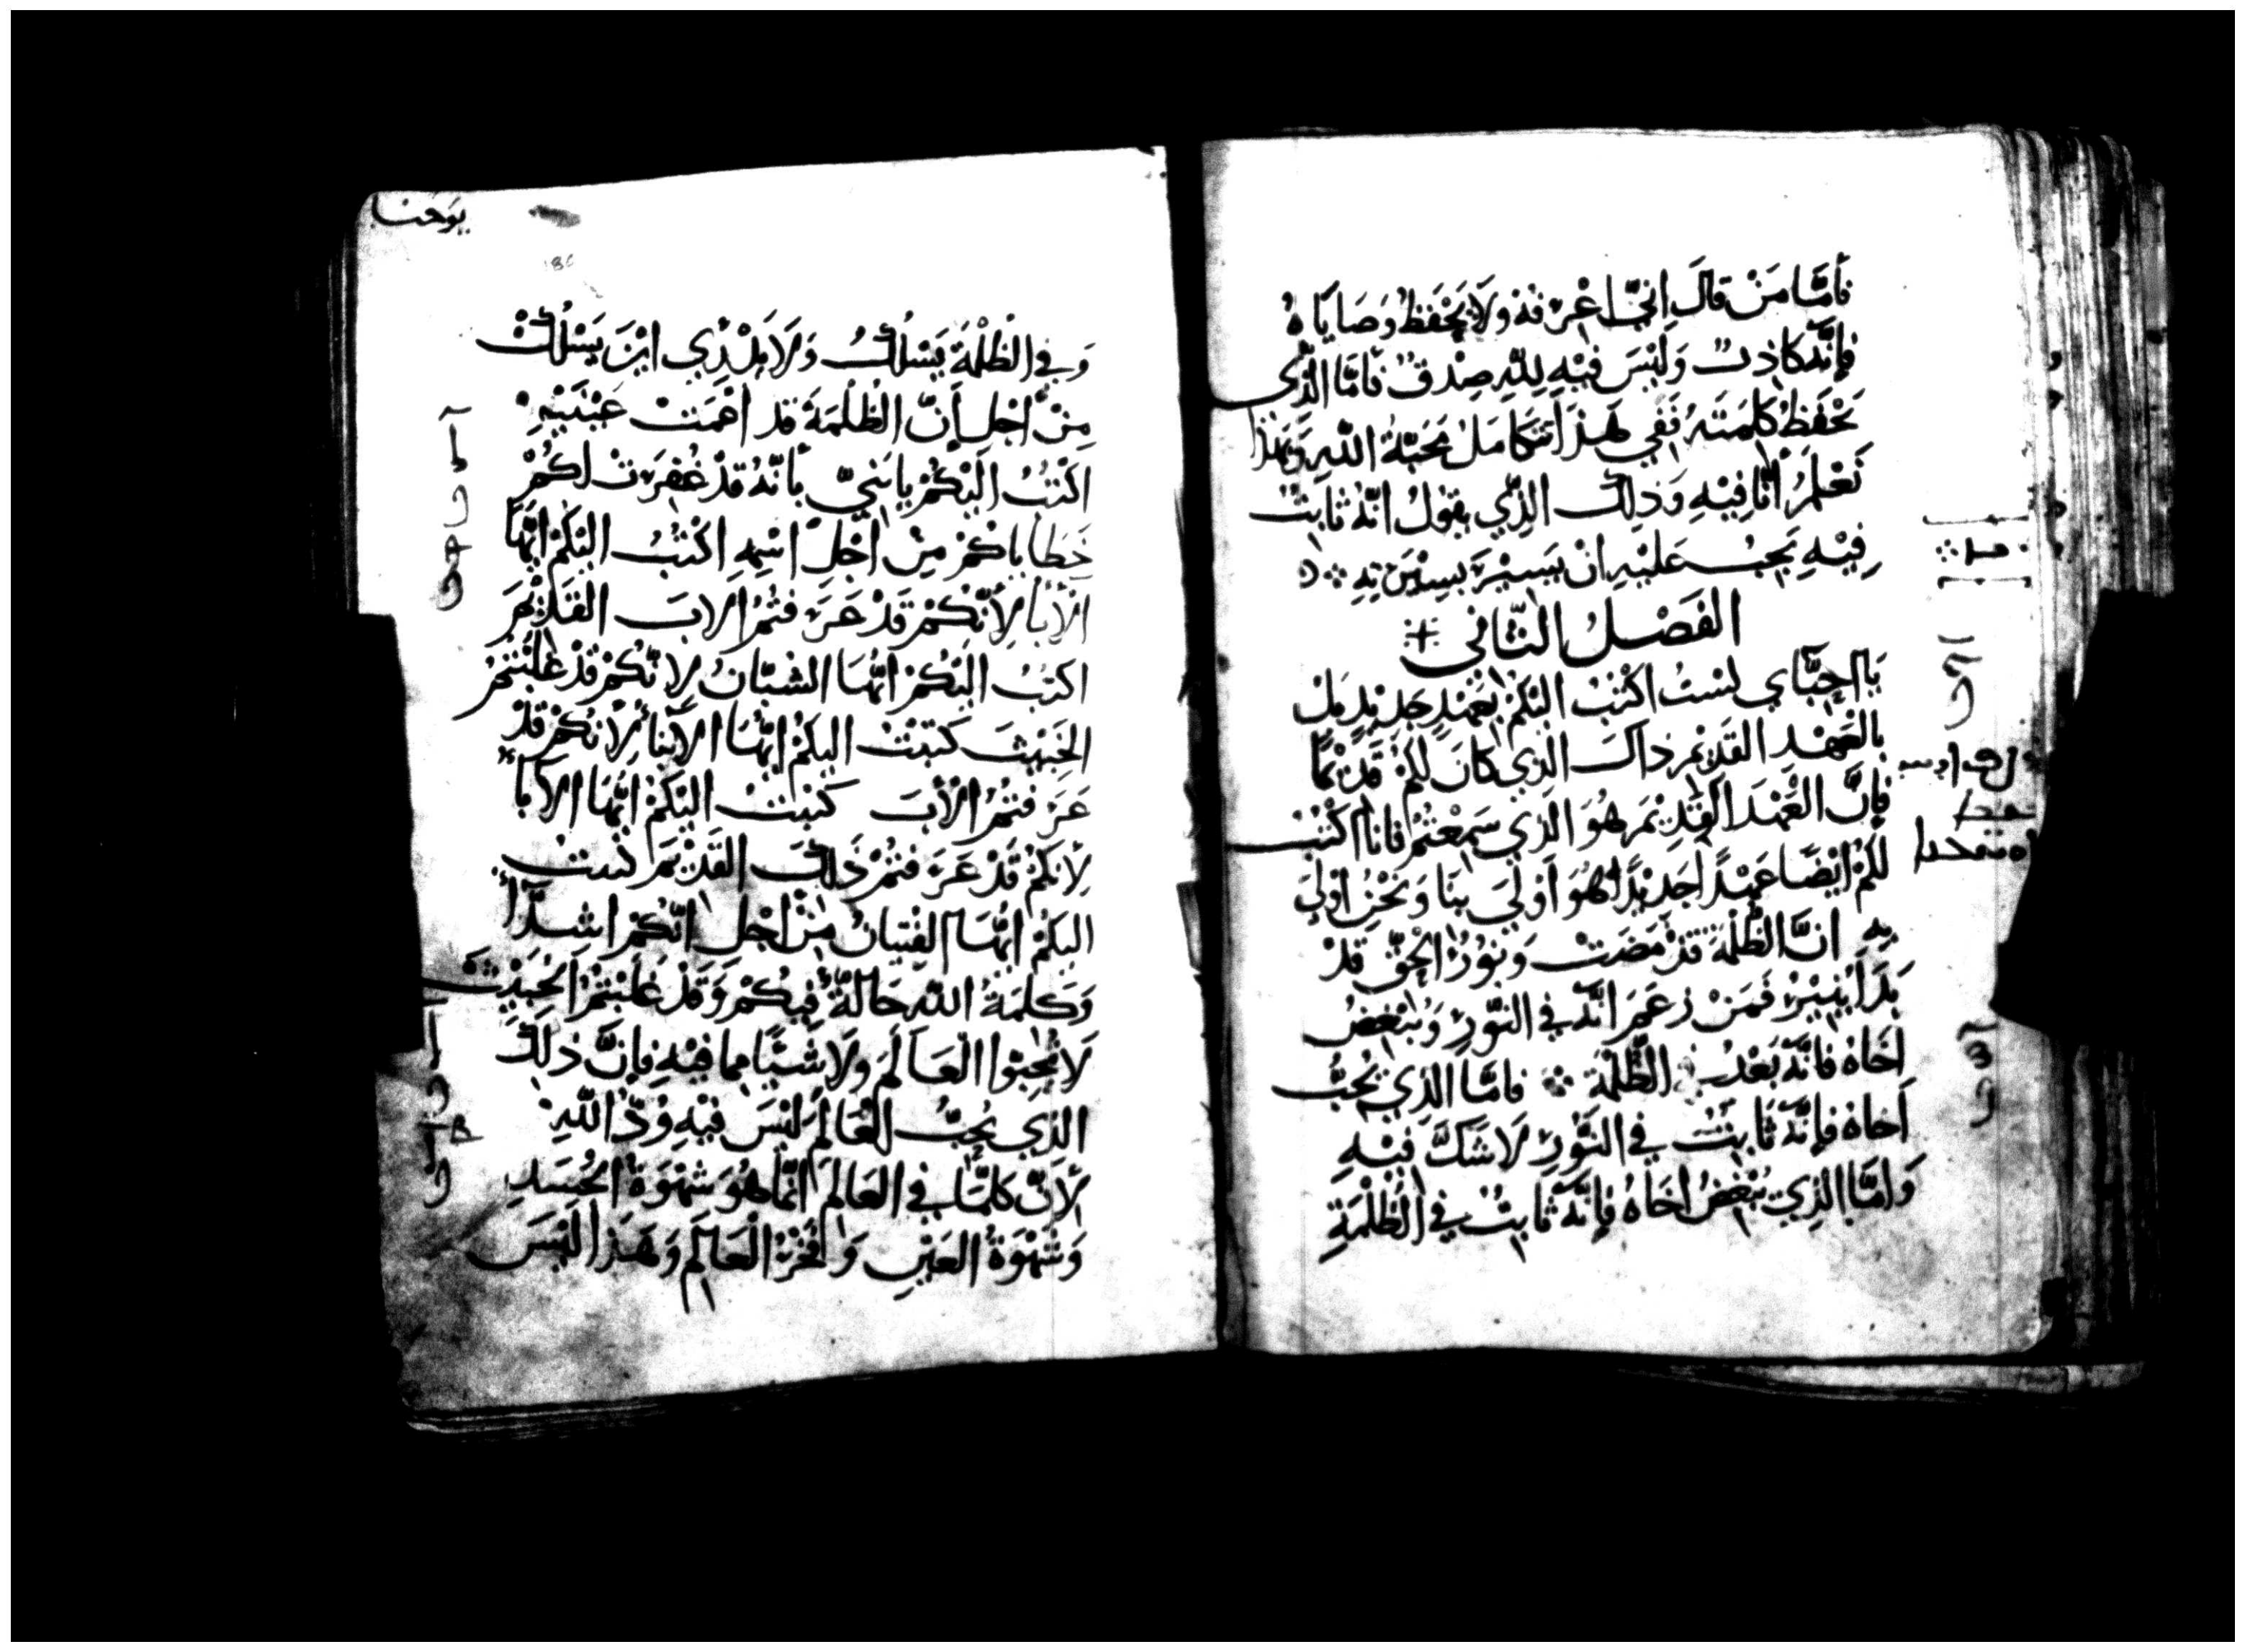 فَأمَّا مَنْ قالَ إنِّي أعْرَفه ولَا يَحْفَظُ وَصَايَاهُ
فإنَّه كاذِبٌ وَلَيْسَ فيْهِ لِلّهِ صِدْقٌ فَأمَّا الذَّى
يَحْفَظُ كَلِمَتَهُ فَفي هَذَا تتكامَلُ مَحَبَّةُ اللّهِ وَبهَذا
نَعْلَمُ أنَّا فِيْهِ وَذلِكَ الذِّي يقوُلُ انَّهُ ثَابتٌ
فِيْهِ يَجِبُ عَليْهِ انْ يَسيْرَ بسِيْرَتهِ
الفَصْلُ الثَّانى
يَا احِبَّاي لسْتُ اكْتُبُ اليْكمُ بعَهْدٍ جَدِيْدٍ بَلْ
بالْعَهْدِ القَدِيْمِ ذاكَ الذِي كانَ لكمُ قَدِيْمًا
فإنَّ العَهْدَ القَدِيْمَ هُوَ الذِي سَمِعْتُمْ فانا اكْتُبُ
لكمُ ايْضًا عَهْدًا جَدِيْدًا هُوَ أوْلَي بنَا وَنَحْنُ اوْلَي
بِهِ انَّ الظُّلْمَةَ قَدْ مَضَتْ وَنوُرُ الحَقِّ قَدْ
بَدَأ يُنِيْرُ فَمَنْ زعَمَ انَّه في النوُّرِ وَيُبْغِضُ
اخَاهُ فَانَّه بَعْدُ في الظُّلْمَة فامَّا الذِي يُحِبُّ
أخاهُ فإنَّه ثَابتٌ في النوُّرِ لَا شَكَّ فيْهِ
وَامَّا الذِي يُبْغِضُ اخَاهُ فإنَّه ثابتٌ في الظُلْمَةِ
يوحنا
وَفي الظُلْمَة يَسْلُكُ وَلَا يَدْرِي ايْنَ يَسْلُكُ
مِنْ اجْلِ أنَّ الظُلْمَةَ قد اعْمَتْ عَيْنَيْهِ
اكْتُبُ اليْكُمْ يا بَنيَّ بأنَّهُ قَدْ غُفِرَتْ لكُمْ
خَطَاياكُمْ مِنْ اجْلِ اسْمِهِ اكْتُبُ اليْكمُ ايُّهَا
الأبَا لِأنَّكُمْ قَدْ عَرَفتُمُ الابَ القَدِيْمَ
اكتبُ اليْكُمْ ايُّهَا الشبَّانُ لِانَّكُمْ قَدْ غَلَبْتمُ
الخَبيْثَ كتبْتُ اليكمُ ايُّهَا الأبْنَا لِأنكُمْ قَدْ
عَرَفتُمُ الْأبَ كتبْتُ اليْكمُ ايُّهَا الأبا
لِأنكمُ قَدْ عَرَفتُمْ ذَلكَ القَدِيْمَ كتبت
اليكمُ ايُّهَا الفِتيانُ مِنْ اجْلِ انَّكُمْ اشِدَّا
وَكلِمَةُ اللّه حَالَّةٌ فِيكُمْ وَقَدْ غَلَبْتمُ الخَبيْثَ
لَا تُحِبوُّا العَالَمَ ولَا شَيْأ مما فيْهِ فإنَّ ذلِكَ
الذِي يُحِبُّ العَالَمَ ليْسَ فيْهِ وُدُّ اللّهِ
لأنَّ كلمَّا في العَالَمِ انَّمَا هُوَ شَهْوَةُ الجَسَدِ
وَشَهْوَةُ العَيْنِ وَافْخَرُ العَالَمِ وَهَذا ليْسَ